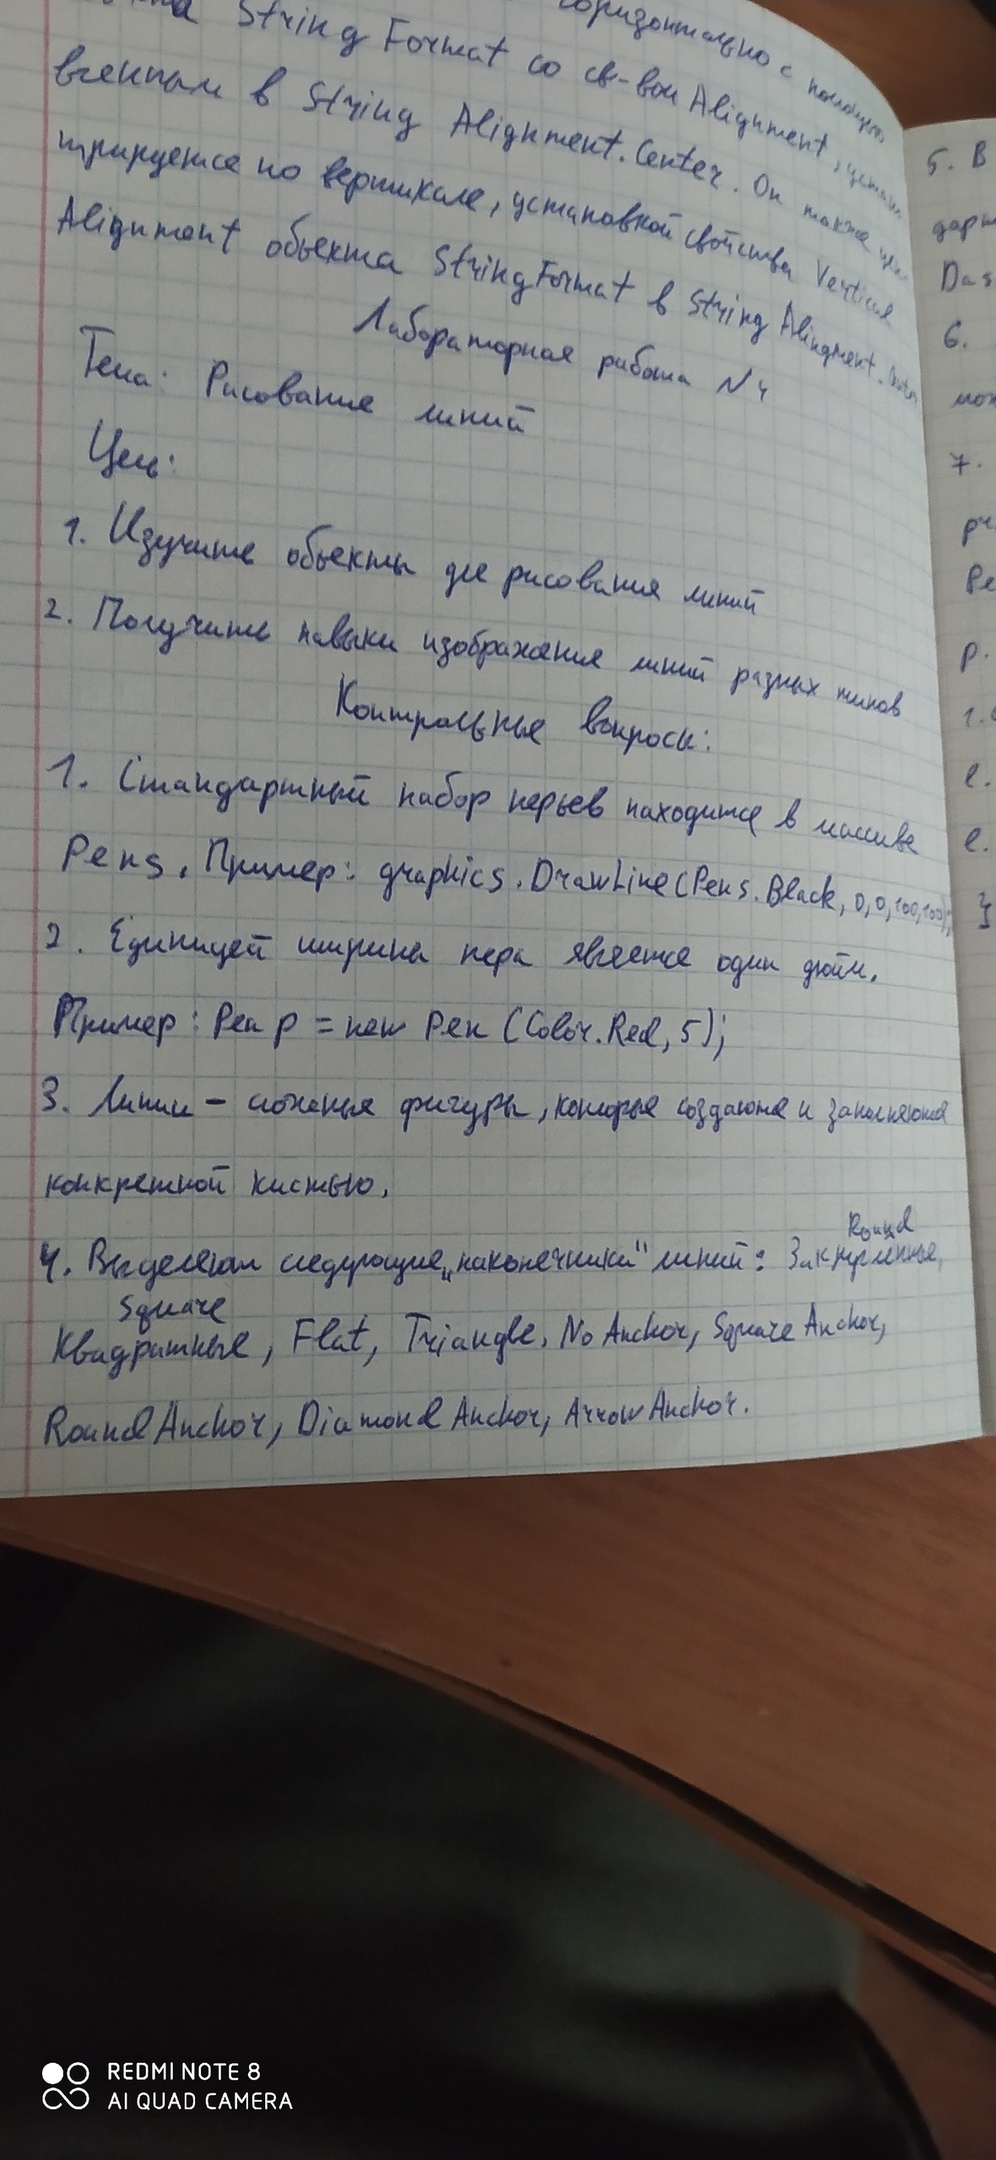 String Format горизонтально с помощью
String Format со св-вом Alignment, устано
вленным в String Alignment.Center. Он также цен
трируется по вертикале, установкой свойства Vertical
Alignment объекта StringFormat в String Alingment.Center
Лабораторная работа N4
Тема: Рисование линий
Цель:
1. Изучить объекты для рисования линий
2. Получить навыки изображения линий разных типов
Контрольные вопросы:
1. Стандартный набор перьев находится в массиве
Pens. Пример: graphics.DrawLine(Pens.Black, 0,0,100,100);
2. Единицей ширины пера является один дюйм.
Пример: Pen p = new Pen (Color.Red, 5);
3. Линии – сложные фигуры, которые создаются и заполняются
конкретной кистью.
4. Выделяют следующие „наконечники" линий: Закругленные,
Round
Square
Квадратные, Flat, Triangle, No Anchor, Square Anchor,
Round Anchor, Diamond Anchor, Arrow Anchor.
5. В
Das
6.
7.
Ре
р.
1.
е.
е.
REDMI NOTE 8
AI QUAD CAMERA